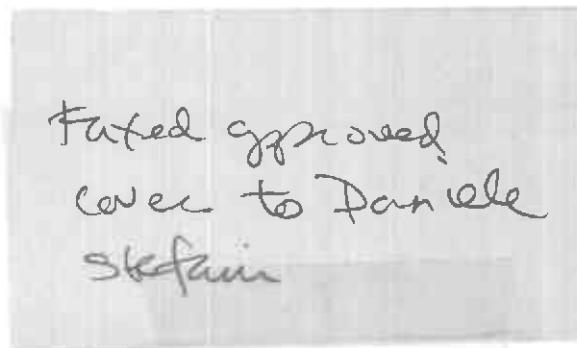 Faxed approved
cover to Daniele
Stefani